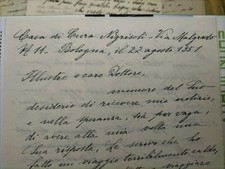 Casa di Cura Nigrisoli - Via Malgrado
N 11. Bologna, il 22 agosto 1951
Illustre e caro Dottore,
memore del Suo
desiderio di ricevere mie notizie,
e nella speranza, sia pur vaga,
di avere alla mia volta una
Sua risposta, Le scrivo che ho
fatto un viaggio terribilmente caldo,
viaggiare